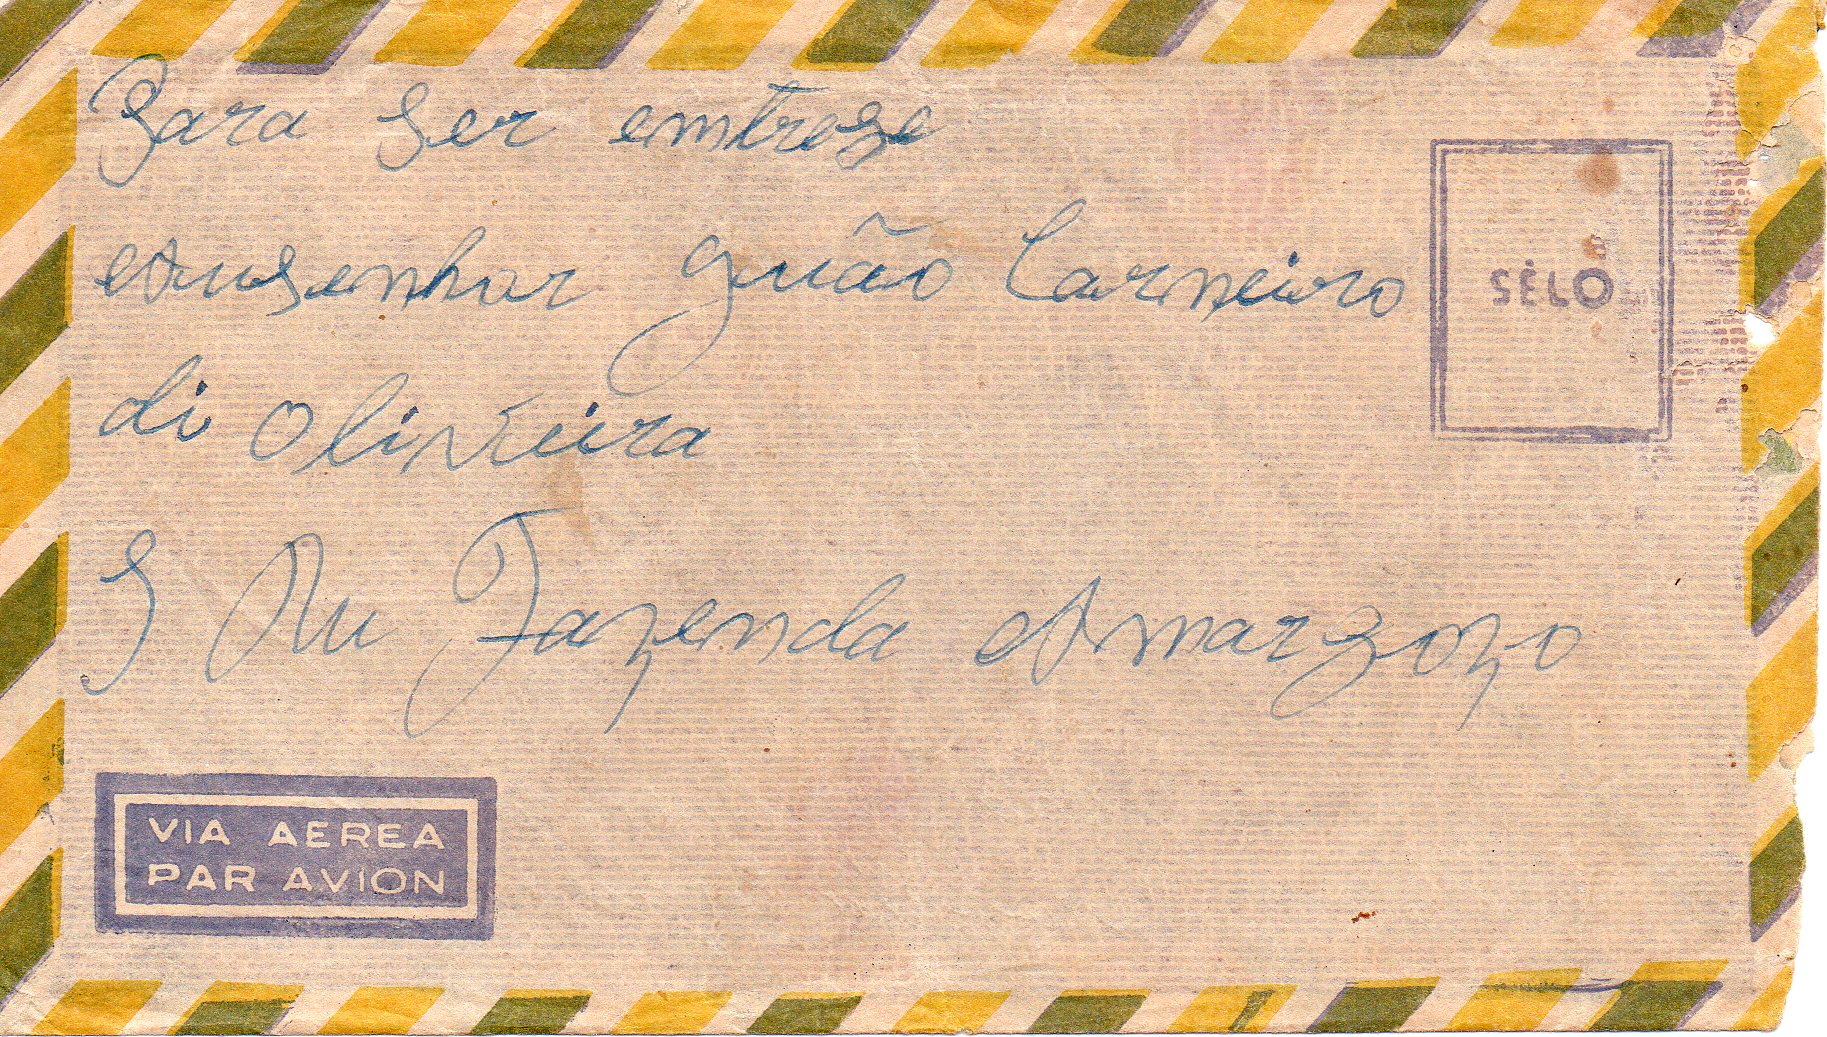 Para Ser emtrege
SÉLO
Ausenhor guão Carneiro
di Oliveira
Fazenda Amargozo
VIA AEREA
PAR AVION